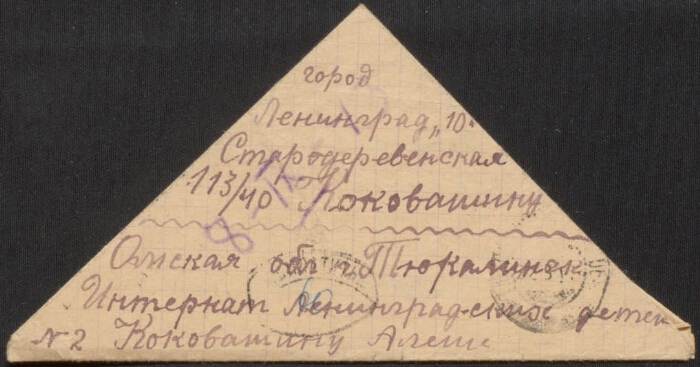 город
Ленинград „10.
Стародеревенская
113/40 Коковашину
Омская обл г. Тюкалинск
Интернат Ленинградских детей
№2 Коковашину Алеше